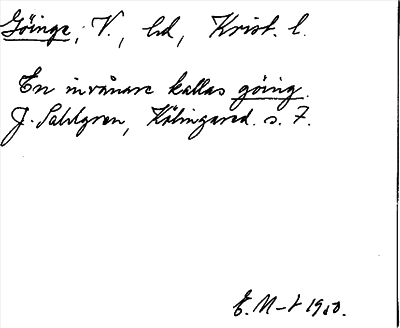 Göinge, V., hd, Krist. l.
En invånare kallas göing.
J. Sahlgren, Kölingared. s. 7.
E. M-t 1950.